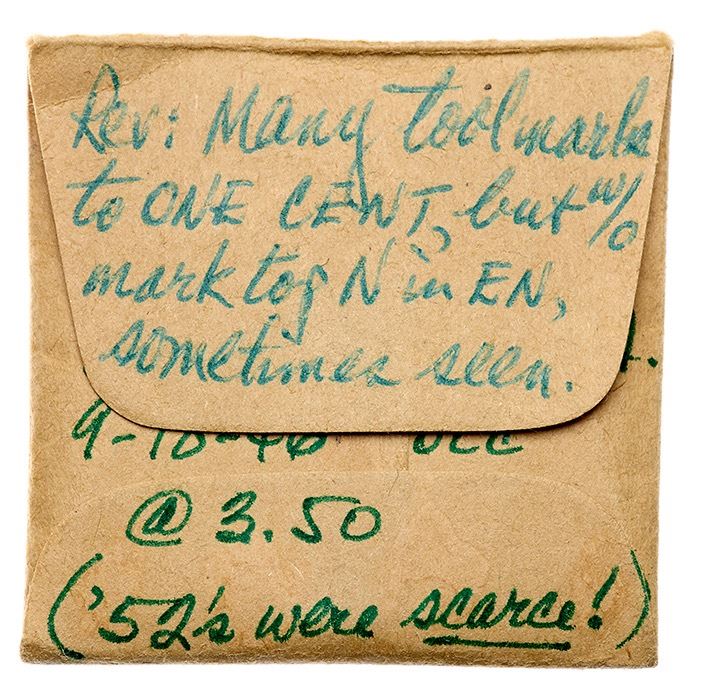 Rev: Many toolmarks
to ONE CENT, but w/o
mark top N in EN,
sometimes seen.
@ 3.50
('52's were scarce!)